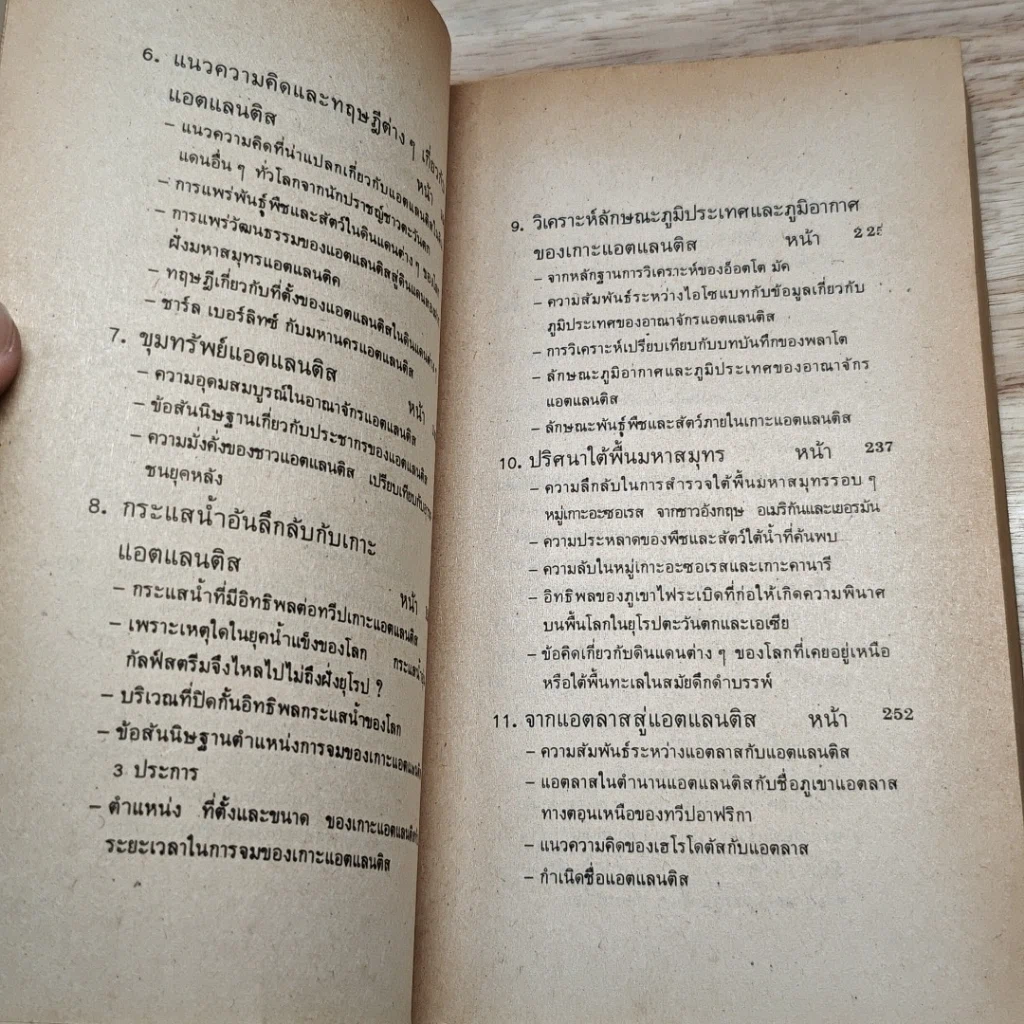 6. แนวความคิดและทฤษฎีต่าง ๆ เกี่ยวกับ
แอตแลนติส หน้า
– แนวความคิดที่น่าแปลกเกี่ยวกับแอตแลนติส
แดนอื่น ๆ ทั่วโลกจากนักปราชญ์ชาวตะวันตก
– การแพร่พันธุ์พืชและสัตว์ในดินแดนต่าง ๆ ของโลก
– การแพร่วัฒนธรรมของแอตแลนติสสู่ดินแดน
ฝั่งมหาสมุทรแอตแลนติค
– ทฤษฎีเกี่ยวกับที่ตั้งของแอตแลนติสในดินแดนต่าง ๆ
– ชาร์ล เบอร์ลิทซ์ กับมหานครแอตแลนติส
7. ขุมทรัพย์แอตแลนติส หน้า
– ความอุดมสมบูรณ์ในอาณาจักรแอตแลนติส
– ข้อสันนิษฐานเกี่ยวกับประชากรของแอตแลนติส
– ความมั่งคั่งของชาวแอตแลนติส เปรียบเทียบกับ
ชนยุคหลัง
8. กระแสน้ำอันลึกลับกับเกาะ
แอตแลนติส หน้า
– กระแสน้ำที่มีอิทธิพลต่อทวีปเกาะแอตแลนติส
– เพราะเหตุใดในยุคน้ำแข็งของโลก กระแสน้ำ
กัลฟ์สตรีมจึงไหลไปไม่ถึงฝั่งยุโรป ?
– บริเวณที่ปิดกั้นอิทธิพลกระแสน้ำของโลก
– ข้อสันนิษฐานตำแหน่งการจมของเกาะแอตแลนติส
3 ประการ
– ตำแหน่ง ที่ตั้งและขนาด ของเกาะแอตแลนติส
ระยะเวลาในการจมของเกาะแอตแลนติส
9. วิเคราะห์ลักษณะภูมิประเทศและภูมิอากาศ
ของเกาะแอตแลนติส หน้า 225
– จากหลักฐานการวิเคราะห์ของอ็อตโต มัค
– ความสัมพันธ์ระหว่างไอโซแบทกับข้อมูลเกี่ยวกับ
ภูมิประเทศของอาณาจักรแอตแลนติส
– การวิเคราะห์เปรียบเทียบกับบทบันทึกของพลาโต
– ลักษณะภูมิอากาศและภูมิประเทศของอาณาจักร
แอตแลนติส
– ลักษณะพันธุ์พืชและสัตว์ภายในเกาะแอตแลนติส
10. ปริศนาใต้พื้นมหาสมุทร หน้า 237
– ความลึกลับในการสำรวจใต้พื้นมหาสมุทรรอบ ๆ
หมู่เกาะอะซอเรส จากชาวอังกฤษ อเมริกันและเยอรมัน
– ความประหลาดของพืชและสัตว์ใต้น้ำที่ค้นพบ
– ความลับในหมู่เกาะอะซอเรสและเกาะคานารี
– อิทธิพลของภูเขาไฟระเบิดที่ก่อให้เกิดความพินาศ
บนพื้นโลกในยุโรปตะวันตกและเอเซีย
– ข้อคิดเกี่ยวกับดินแดนต่าง ๆ ของโลกที่เคยอยู่เหนือ
หรือใต้พื้นทะเลในสมัยดึกดำบรรพ์
11. จากแอตลาสสู่แอตแลนติส หน้า 252
– ความสัมพันธ์ระหว่างแอตลาสกับแอตแลนติส
– แอตลาสในตำนานแอตแลนติสกับชื่อภูเขาแอตลาส
ทางตอนเหนือของทวีปอาฟริกา
– แนวความคิดของเฮโรโดตัสกับแอตลาส
– กำเนิดชื่อแอตแลนติส